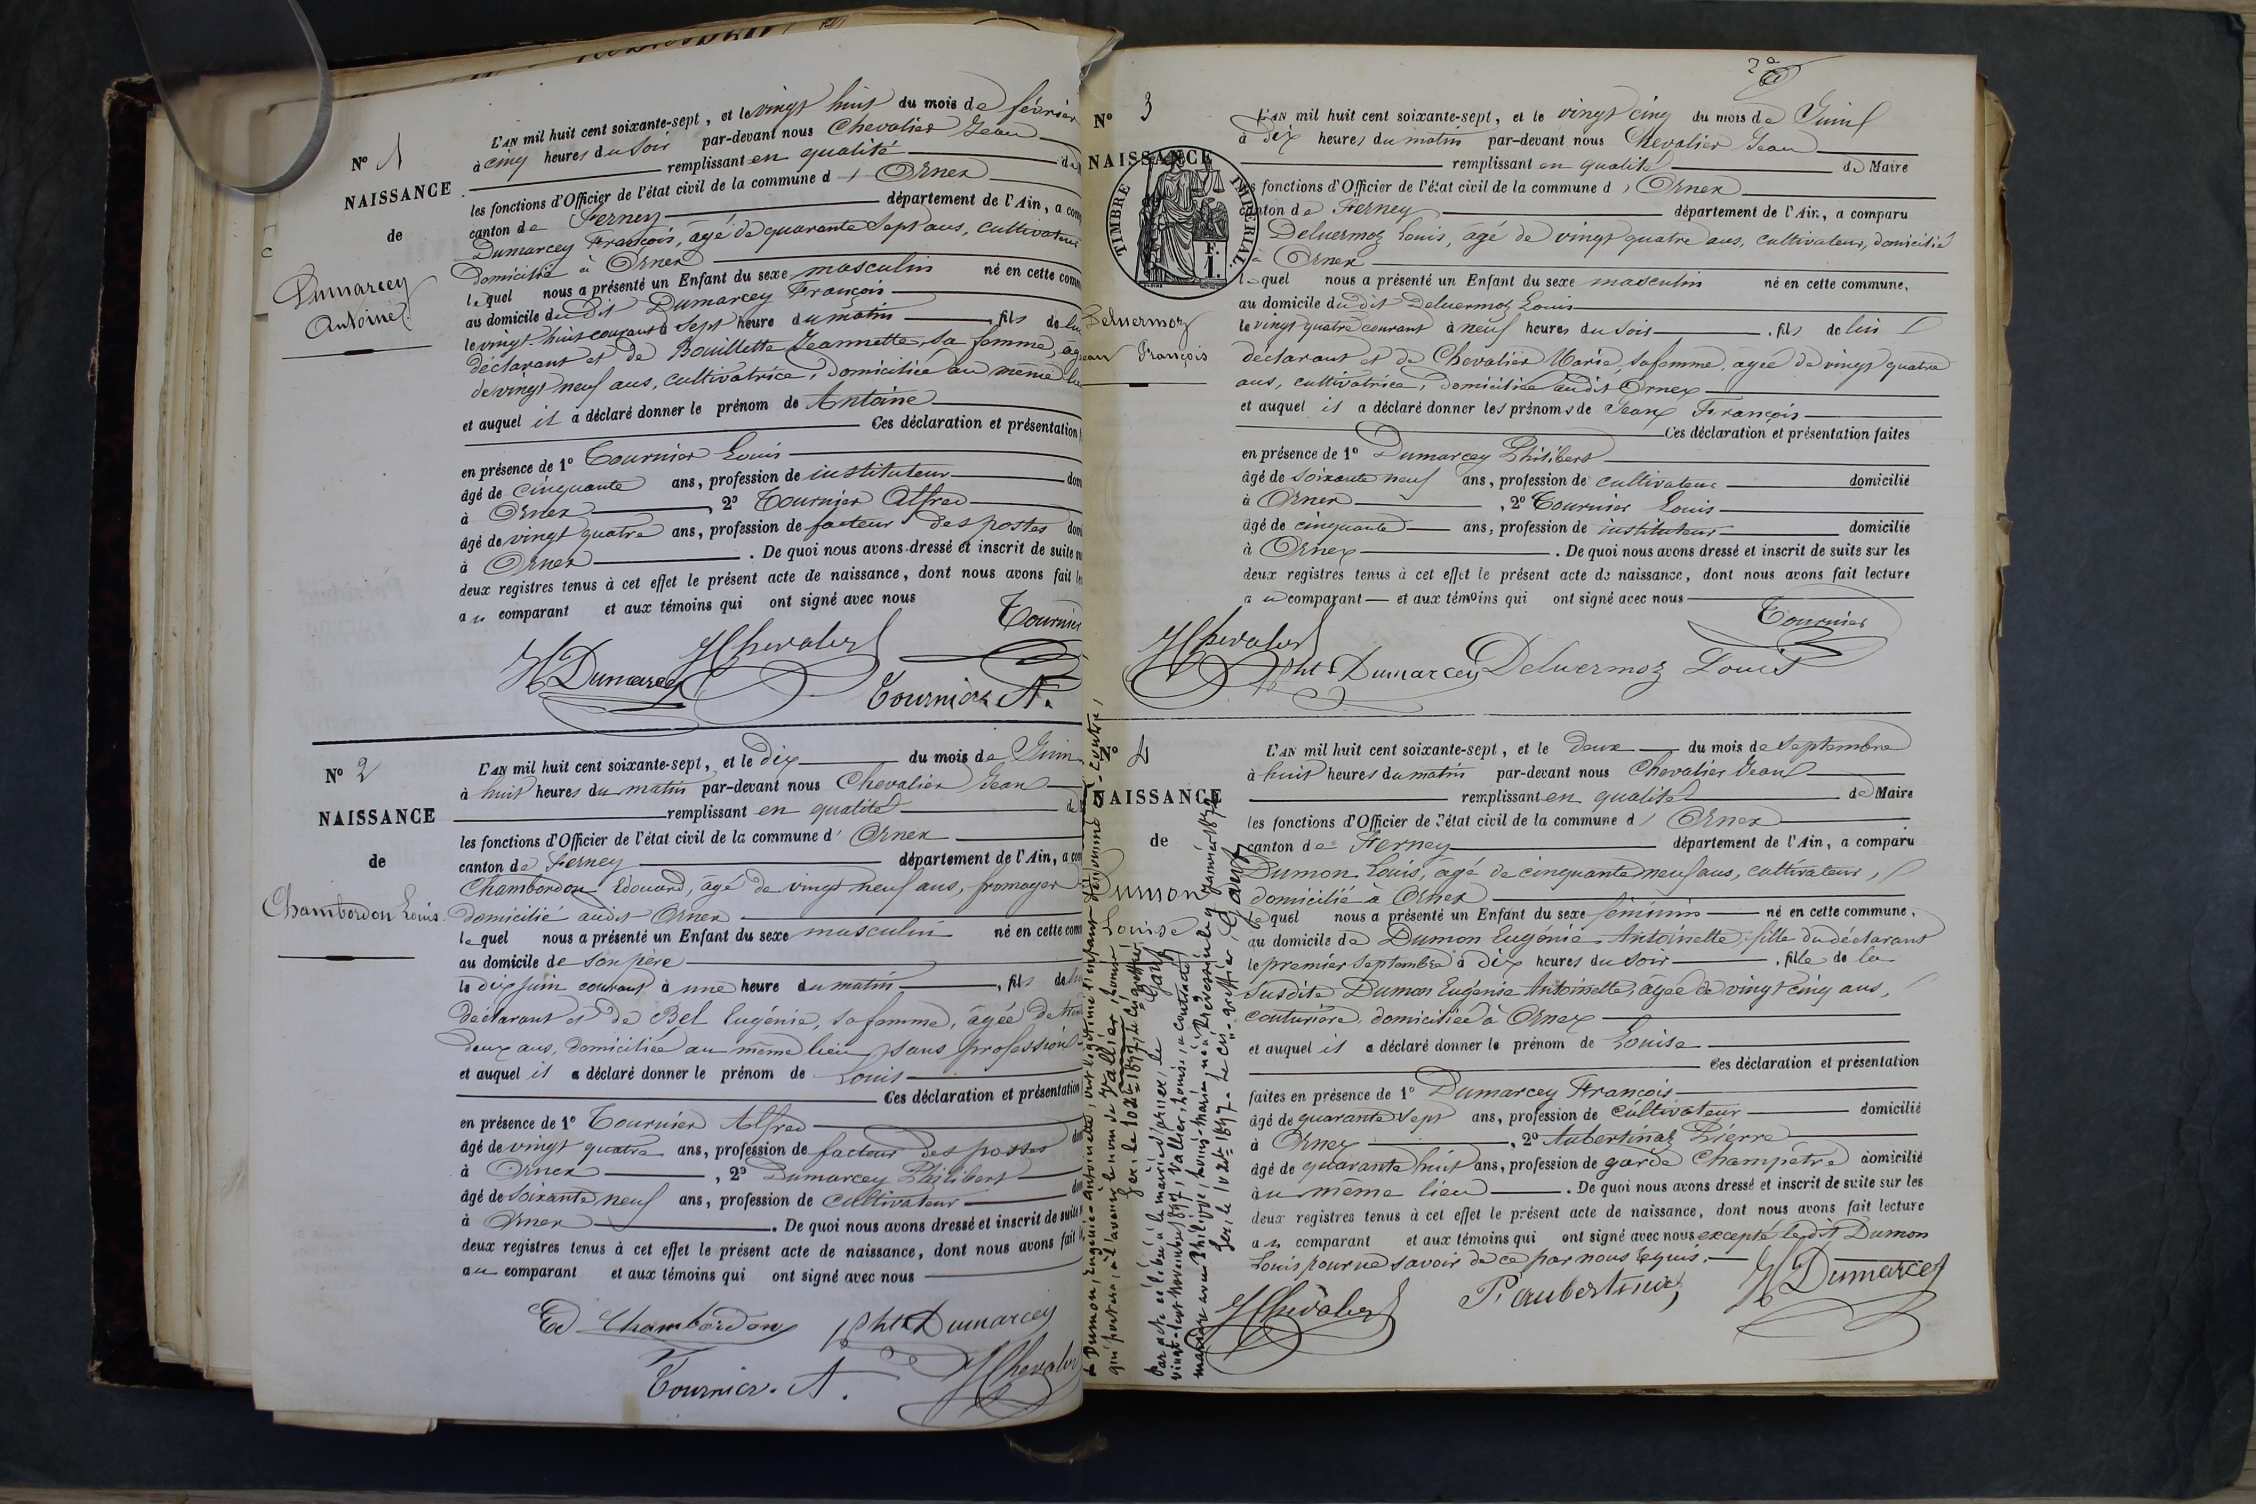 N° 1
NAISSANCE
de
Dumarcey
Antoine
L'AN mil huit cent soixante-sept, et le vingt huit du mois de février
à cinq heures du soir par-devant nous Chevalier Jean
remplissant en qualité de
les fonctions d'Officier de l'état civil de la commune d' Ornex
canton de Ferney département de l'Ain, a
Dumarcey François, âgé de quarante sept ans, cultivateur
domicilié à Ornex
lequel nous a présenté un Enfant du sexe masculin né en cette
au domicile du dit Dumarcey François
le vingt huit courant à sept heure du matin, fils de lui
déclarant et de Bouillette Jeannette, sa femme,
de vingt neuf ans, cultivatrice, domiciliée au même
et auquel il a déclaré donner le prénom de Antoine
Ces déclaration et présentation
en présence de 1° Tournier Louis
âgé de cinquante ans, profession de instituteur
à Ornex, 2° Tournier Alfred
âgé de vingt quatre ans, profession de facteur des postes
à Ornex. De quoi nous avons dressé et inscrit de suite
deux registres tenus à cet effet le présent acte de naissance, dont nous avons fait
au comparant et aux témoins qui ont signé avec nous
Tournier
Dumarcey JChevalier
Tournier A.
N° 2
NAISSANCE
de
Chambordon Louis
L'AN mil huit cent soixante-sept, et le dix du mois de Juin
à huit heures du matin par-devant nous Chevalier Jean
remplissant en qualité
les fonctions d'Officier de l'état civil de la commune d' Ornex
canton de Ferney département de l'Ain, a
Chambordon Edouard, âgé de vingt neuf ans, fromager
domicilié audit Ornex
lequel nous a présenté un Enfant du sexe masculin né en cette
au domicile de son père
le dix juin courant à une heure du matin, fils de
déclarant et de Bel Eugénie, sa femme, âgée de
deux ans, domiciliée au même lieu, sans profession
et auquel il a déclaré donner le prénom de Louis
Ces déclaration et présentation
en présence de 1° Tournier Alfred
âgé de vingt quatre ans, profession de facteur des postes
à Ornex, 2° Dumarcey Philibert
âgé de soixante neuf ans, profession de cultivateur
à Ornex. De quoi nous avons dressé et inscrit de suite
deux registres tenus à cet effet le présent acte de naissance, dont nous avons fait
au comparant et aux témoins qui ont signé avec nous
Ed Chambordon Phte Dumarcey
Tournier. A. JChevalier
N° 3
NAISSANCE
TIMBRE IMPERIAL
F.
1.
Deluermoz
Jean François
L'AN mil huit cent soixante-sept, et le vingt cinq du mois de Juin
à dix heures du matin par-devant nous Chevalier Jean
remplissant en qualité de Maire
les fonctions d'Officier de l'état civil de la commune d' Ornex
canton de Ferney département de l'Ain, a comparu
Deluermoz Louis, âgé de vingt quatre ans, cultivateur, domicilié
à Ornex
lequel nous a présenté un Enfant du sexe masculin né en cette commune,
au domicile du dit Deluermoz Louis
le vingt quatre courant à neuf heures du soir, fils de lui
déclarant et de Chevalier Marie, sa femme, agée de vingt quatre
ans, cultivatrice, domiciliée audit Ornex
et auquel il a déclaré donner les prénoms de Jean François
Ces déclaration et présentation faites
en présence de 1° Dumarcey Philibert
âgé de soixante neuf ans, profession de cultivateur domicilié
à Ornex, 2° Tournier Louis
âgé de cinquante ans, profession de instituteur domicilié
à Ornex. De quoi nous avons dressé et inscrit de suite sur les
deux registres tenus à cet effet le présent acte de naissance, dont nous avons fait lecture
au comparant et aux témoins qui ont signé avec nous
Tournier
JChevalier Phte Dumarcey Deluermoz Louis
N° 4
NAISSANCE
de
Dumon
Louise
L'AN mil huit cent soixante-sept, et le deux du mois de septembre
à huit heures du matin par-devant nous Chevalier Jean
remplissant en qualité de Maire
les fonctions d'Officier de l'état civil de la commune d' Ornex
canton de Ferney département de l'Ain, a comparu
Dumon Louis, âgé de cinquante neuf ans, cultivateur,
domicilié à Ornex
lequel nous a présenté un Enfant du sexe féminin né en cette commune,
au domicile de Dumon Eugénie Antoinette, fille du déclarant
le premier septembre à dix heures du soir, fille de la
susdite Dumon Eugénie Antoinette, âgée de vingt cinq ans,
couturière, domiciliée à Ornex
et auquel il a déclaré donner le prénom de Louise
Ces déclaration et présentation
faites en présence de 1° Dumarcey François
âgé de quarante sept ans, profession de cultivateur domicilié
à Ornex, 2° Aubertinaz Pierre
âgé de quarante huit ans, profession de garde Champêtre domicilié
au même lieu. De quoi nous avons dressé et inscrit de suite sur les
deux registres tenus à cet effet le présent acte de naissance, dont nous avons fait lecture
au comparant et aux témoins qui ont signé avec nous excepté ledit Dumon
Louis pour ne savoir de ce par nous requis.
JChevalier P. aubertinaz Dumarcey